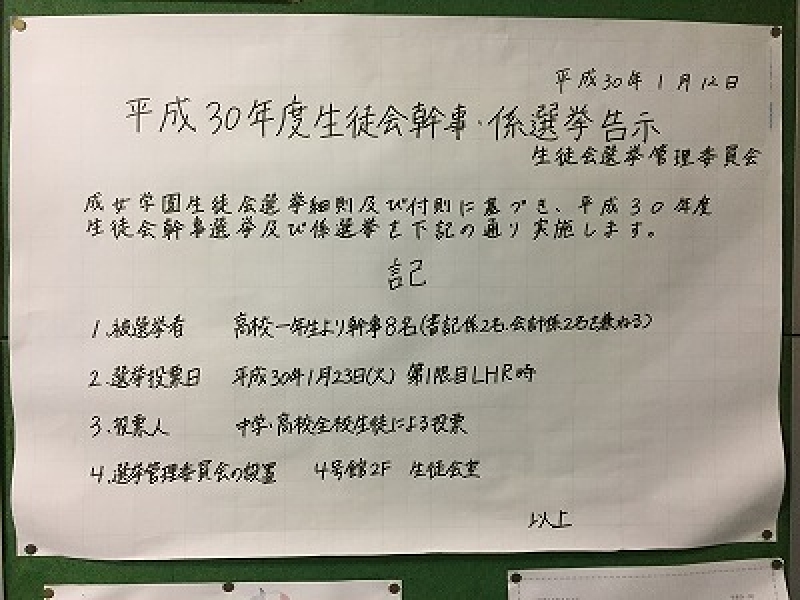 平成30年1月12日
平成30年度生徒会幹事・係選挙告示
生徒会選挙管理委員会
成女学園生徒会選挙細則及び付則に基づき、平成30年度
生徒会幹事選挙及び係選挙を下記の通り実施します。
記
1.被選挙者 高校一年生より幹事8名(書記係2名、会計係2名を兼ねる)
2.選挙投票日 平成30年1月23日(火) 第1限目LHR時
3.投票人 中学・高校全校生徒による投票
4.選挙管理委員会の設置 4号館2F 生徒会室
以上